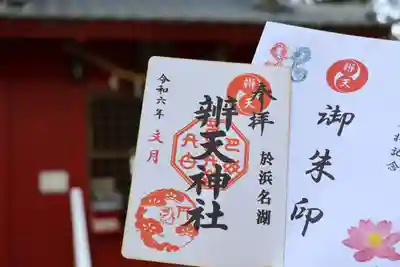 奉拝
於浜名湖
辨天神社
令和六年
文月
辨天
御朱印